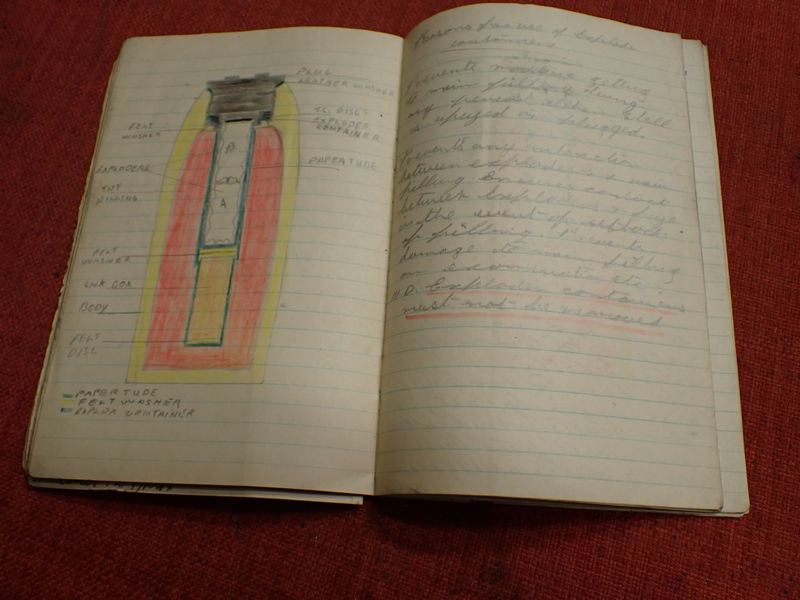 PLUG
LEATHER WASHER
T.C. DISCS
EXPLODER
CONTAINER
FELT
WASHER
PAPERTUDE
EXPLODERS
TNT
FILLING
B
A
FELT
WASHER
BODY
FELT
DISC
PAPERTUDE
FELT WASHER
CONTAINER
for use of Explode
containers
Prevents moisture getting
to main filling during
any period when shell
is unplugged
Prevents any interaction
between exploders & main
filling Ensures contact
between Exploders & fuze
in the event of setback
of filling Prevents
damage to main filling
on examination etc
N.B. Exploder containers
must not be removed